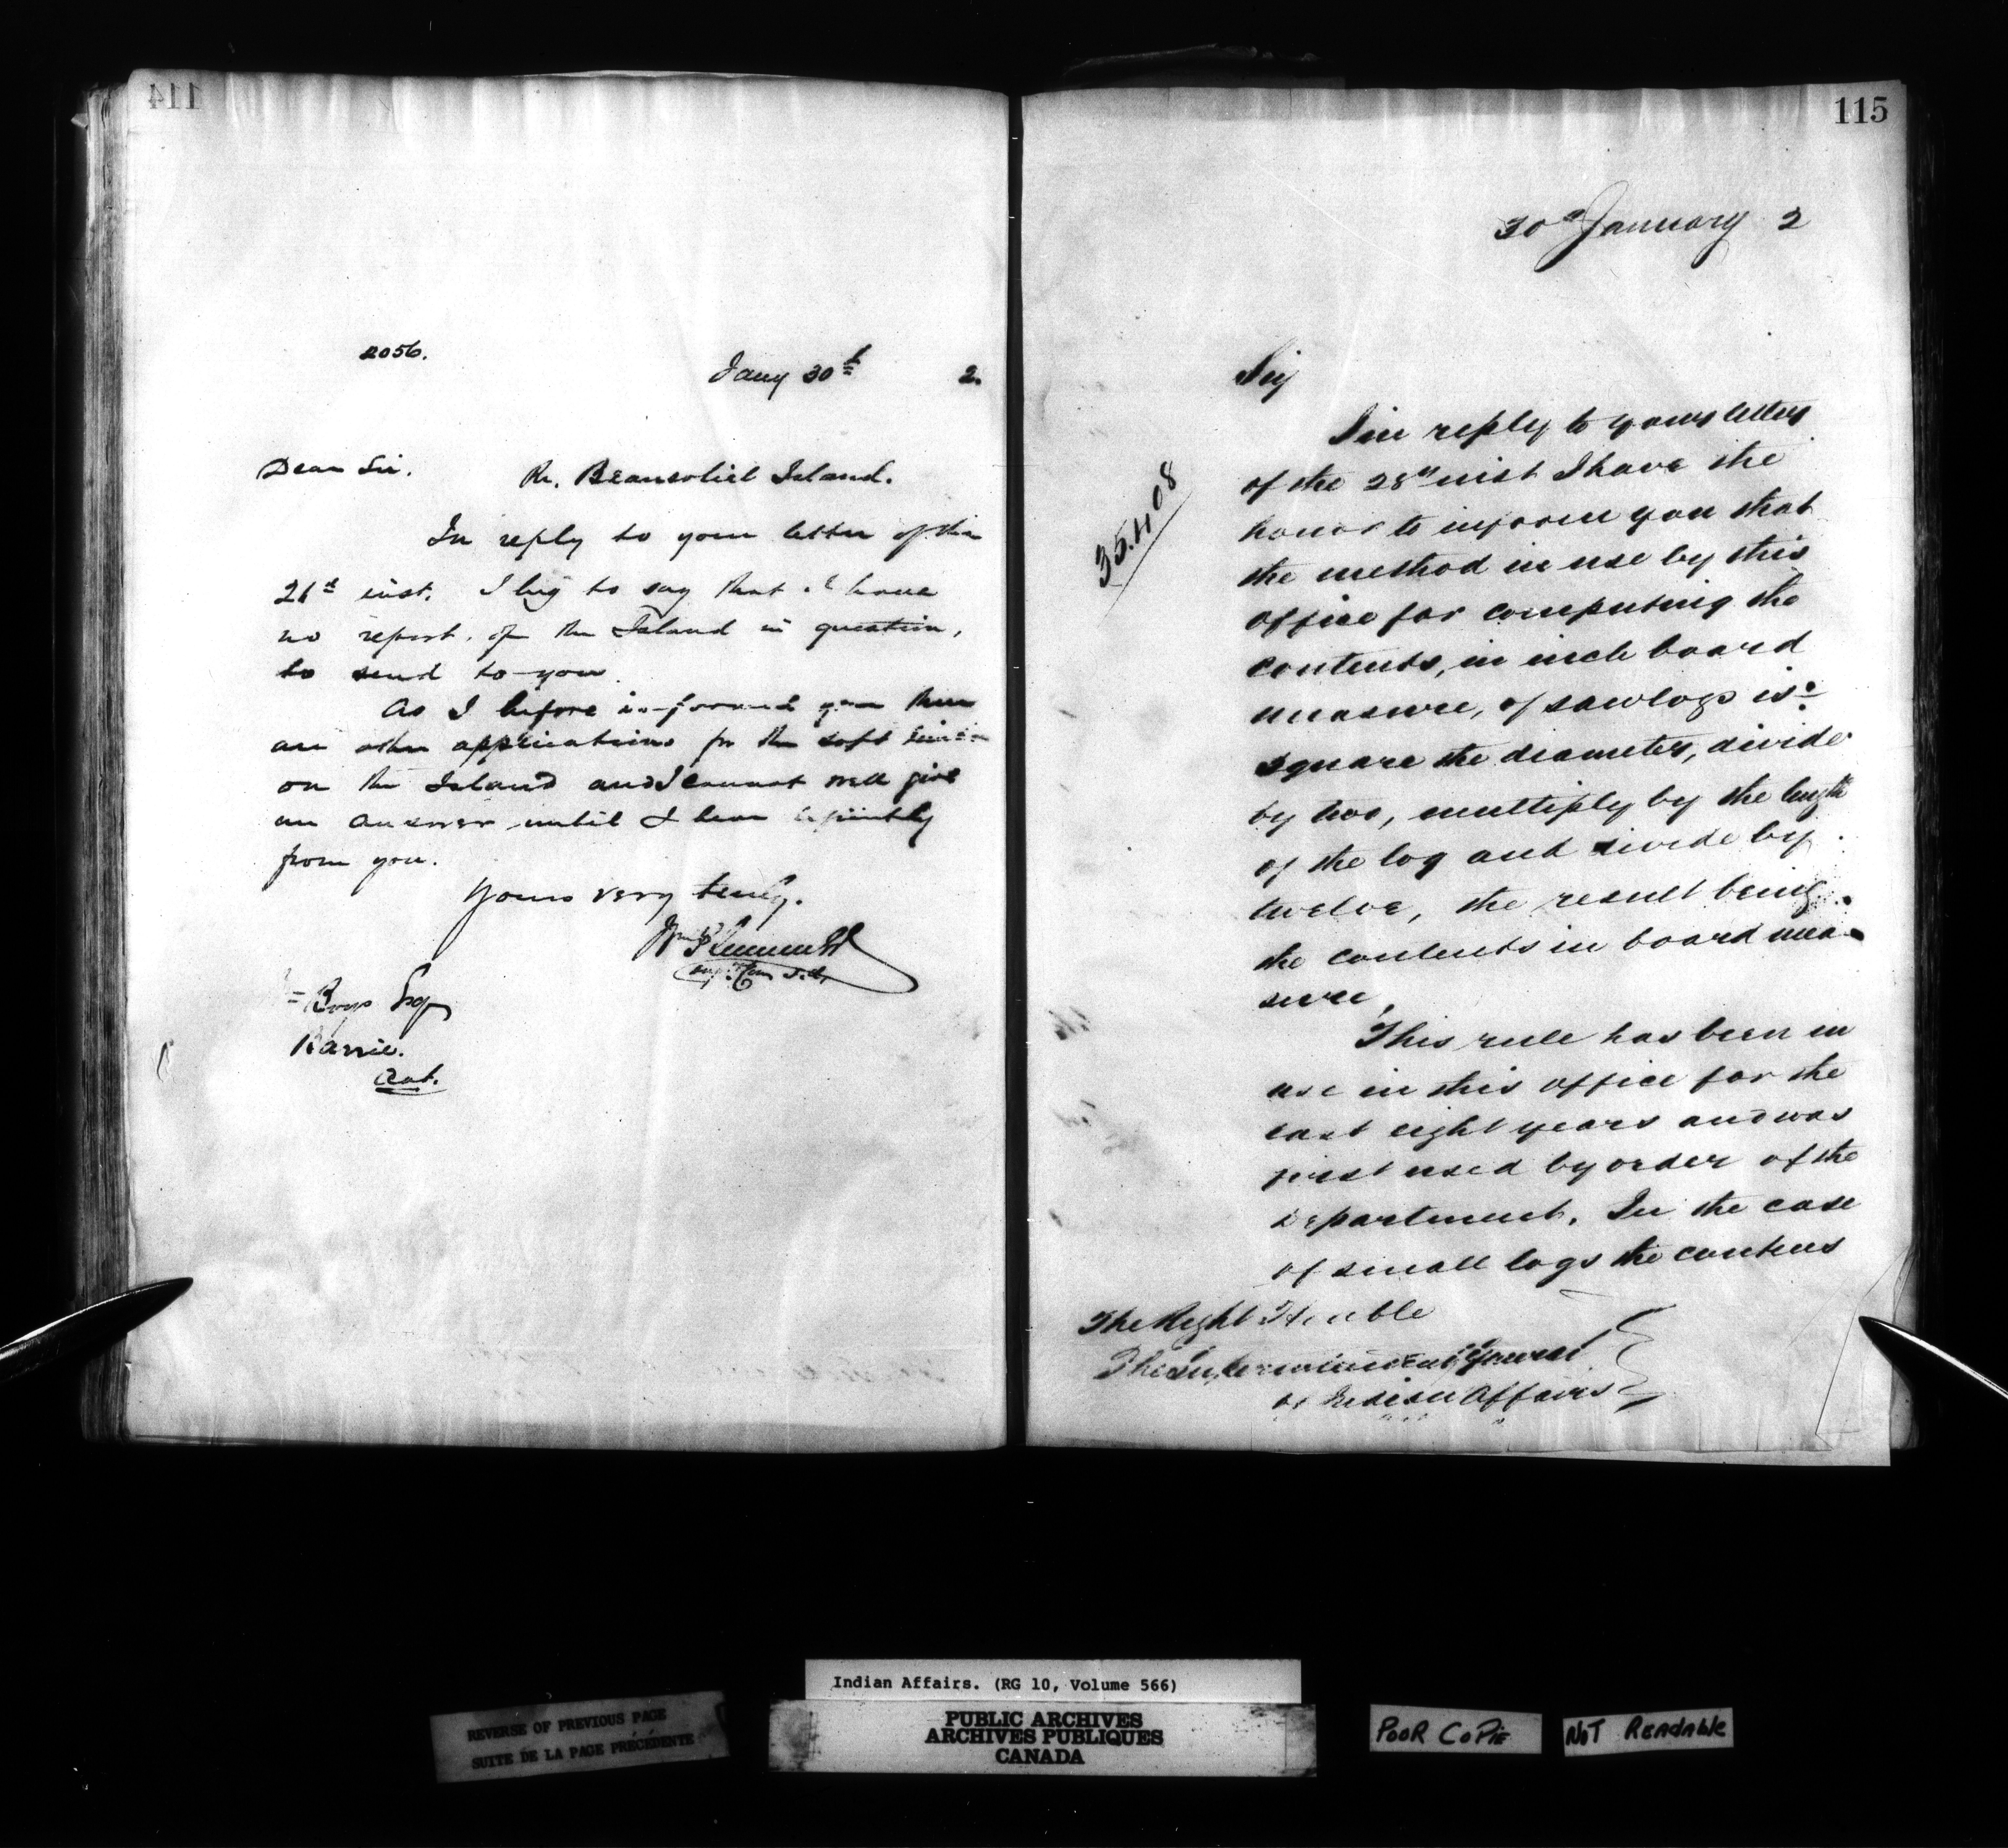 114
2056.
Jany 30th 2.
Dear Sir.
Re. Beausoliel Island.
In reply to your letter of the
26th inst. I beg to say that I have
no report of the Island in question,
to send to you.
As I before informed you there
are other applications for the soft
on the Island and I cannot well give
an answer until I hear definitely
from you.
Yours very truly.
Wm Plummer
Esq
Barrie.
Ont.
115
30th January 2
35.408
Sir
In reply to your letter
of the 28th inst I have the
honor to inform you that
the method in use by this
office for computing the
contents, in inch board
measure, of sawlogs is:
square the diameter, divide
by two, multiply by the length
of the log and divide by
twelve, the result being
the contents in board mea-
sure,
This rule has been in
use in this office for the
last eight years and was
first used by order of the
Department. In the case
of small logs the contents
The Right Honble
The Superintendent General
of Indian Affairs
Indian Affairs. (RG 10, Volume 566)
REVERSE OF PREVIOUS PAGE
SUITE DE LA PAGE PRÉCÉDENTE
PUBLIC ARCHIVES
ARCHIVES PUBLIQUES
CANADA
POOR COPIE
NOT READABLE